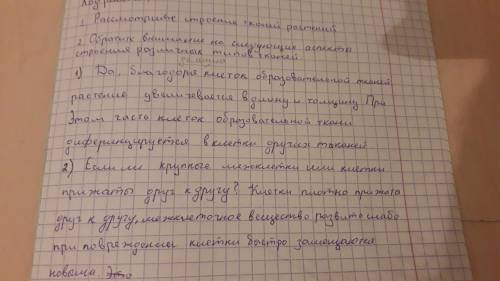 1. Рассмотрите строение тканей растений
2. Обратить внимание на следующие аспекты
строения различных типов тканей
1) Да, благодаря клеток образовательной тканей
растение увеличевается в длину и толщину. При
Этом часть клеток образовательной ткани
диференцируется в клетки других тканей
2) Есть ли крупные межклетки или клетки
прижаты друг к другу? Клетки плотно прижата
друг к другу, межклеточное вещество развито слабо
при повреждении клетки быстро замещаются
новыма.